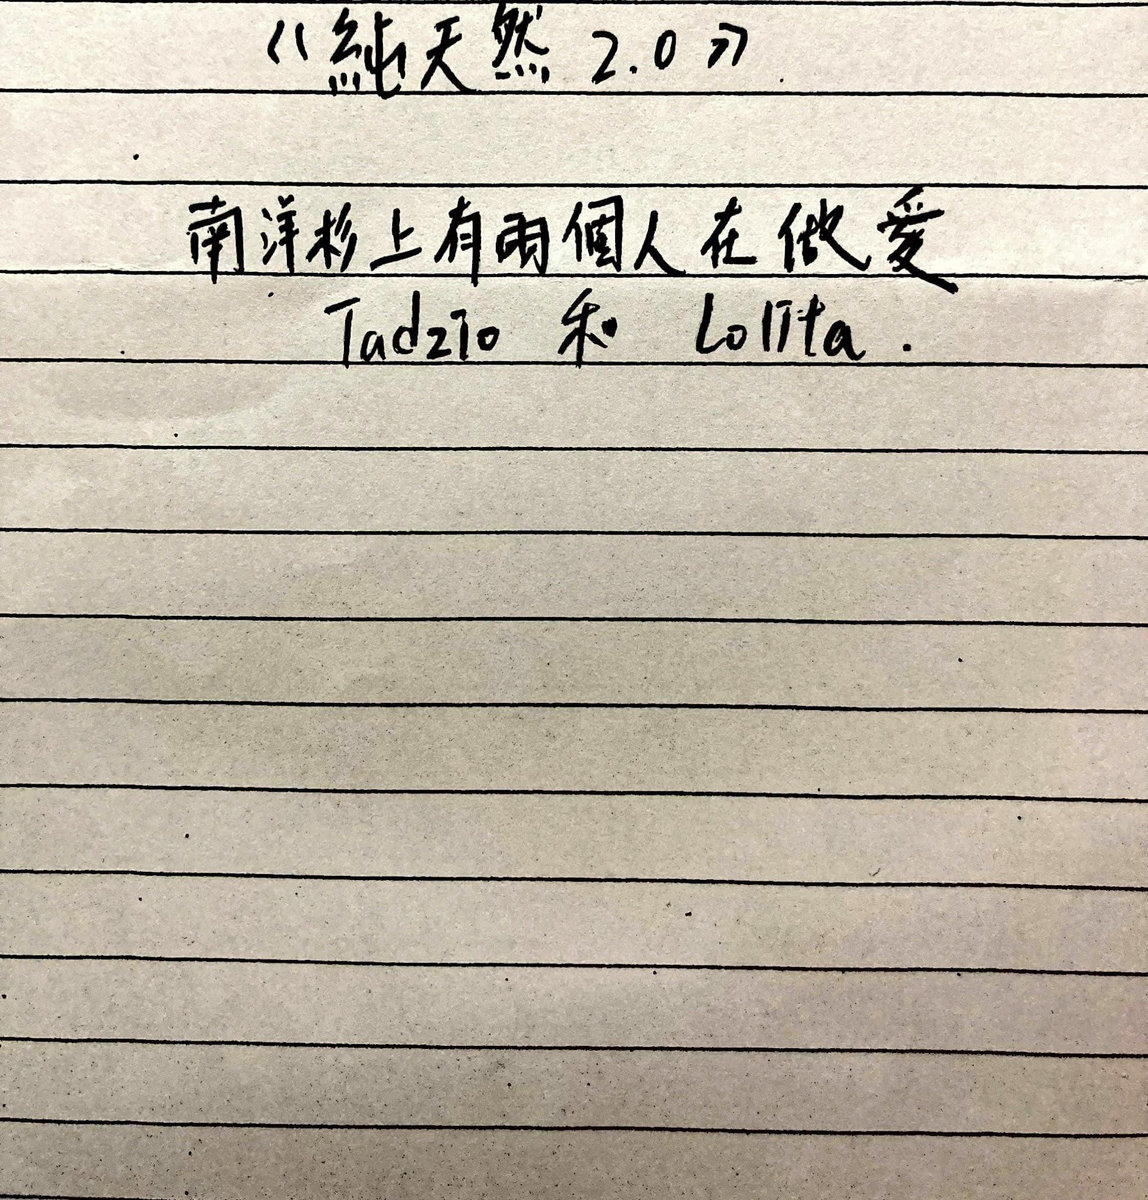 《純天然 2.0》
南洋杉上有兩個人在做愛
Tadzio 和 Lolita.